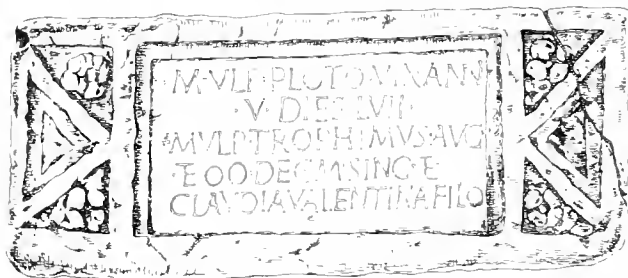 M·VLP·PLVTO VIX ANN
·V·DIEB·LVII·
M VLP·TROPHIMVS·AVG
·E·OO·DEC·M·SING·E
CLAVDIA VALENTINA FILO